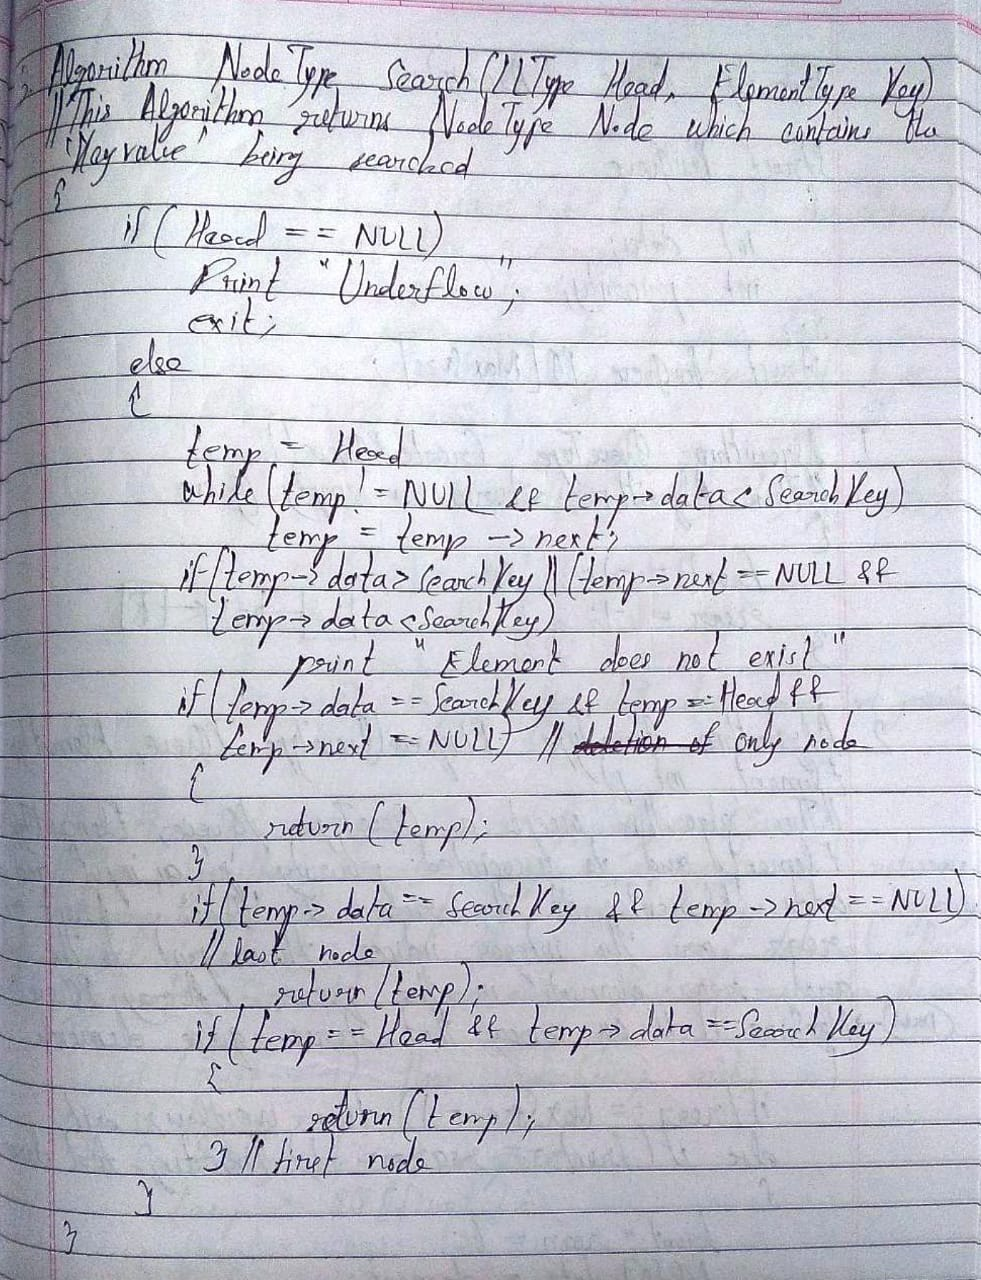 2. Algorithm NodeType Search(LLType Head, ElementType Key)
// This Algorithm returns NodeType Node which contains the
'Key value' being searched
{
if ( Head == NULL)
Print "Underflow";
exit;
else
{
temp = Head
while (temp != NULL && temp → data < SearchKey)
temp = temp -> next;
if (temp -> data > SearchKey || (temp → next == NULL &&
temp → data < SearchKey)
print "Element does not exist"
if ( temp → data == SearchKey && temp == Head &&
temp → next == NULL) // deletion of only node
{
return ( temp);
}
if (temp -> data == SearchKey && temp -> next == NULL)
// last node
return (temp);
if ( temp == Head && temp → data == SearchKey)
{
return (temp);
} // first node
}
}